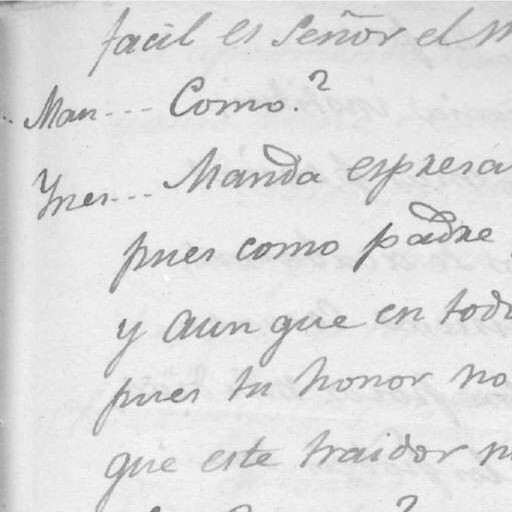 facil es Señor el m
Man --- Como?
Ynes --- Manda espresa
pues como padre
y aun que en todo
pues tu honor no
que este traidor